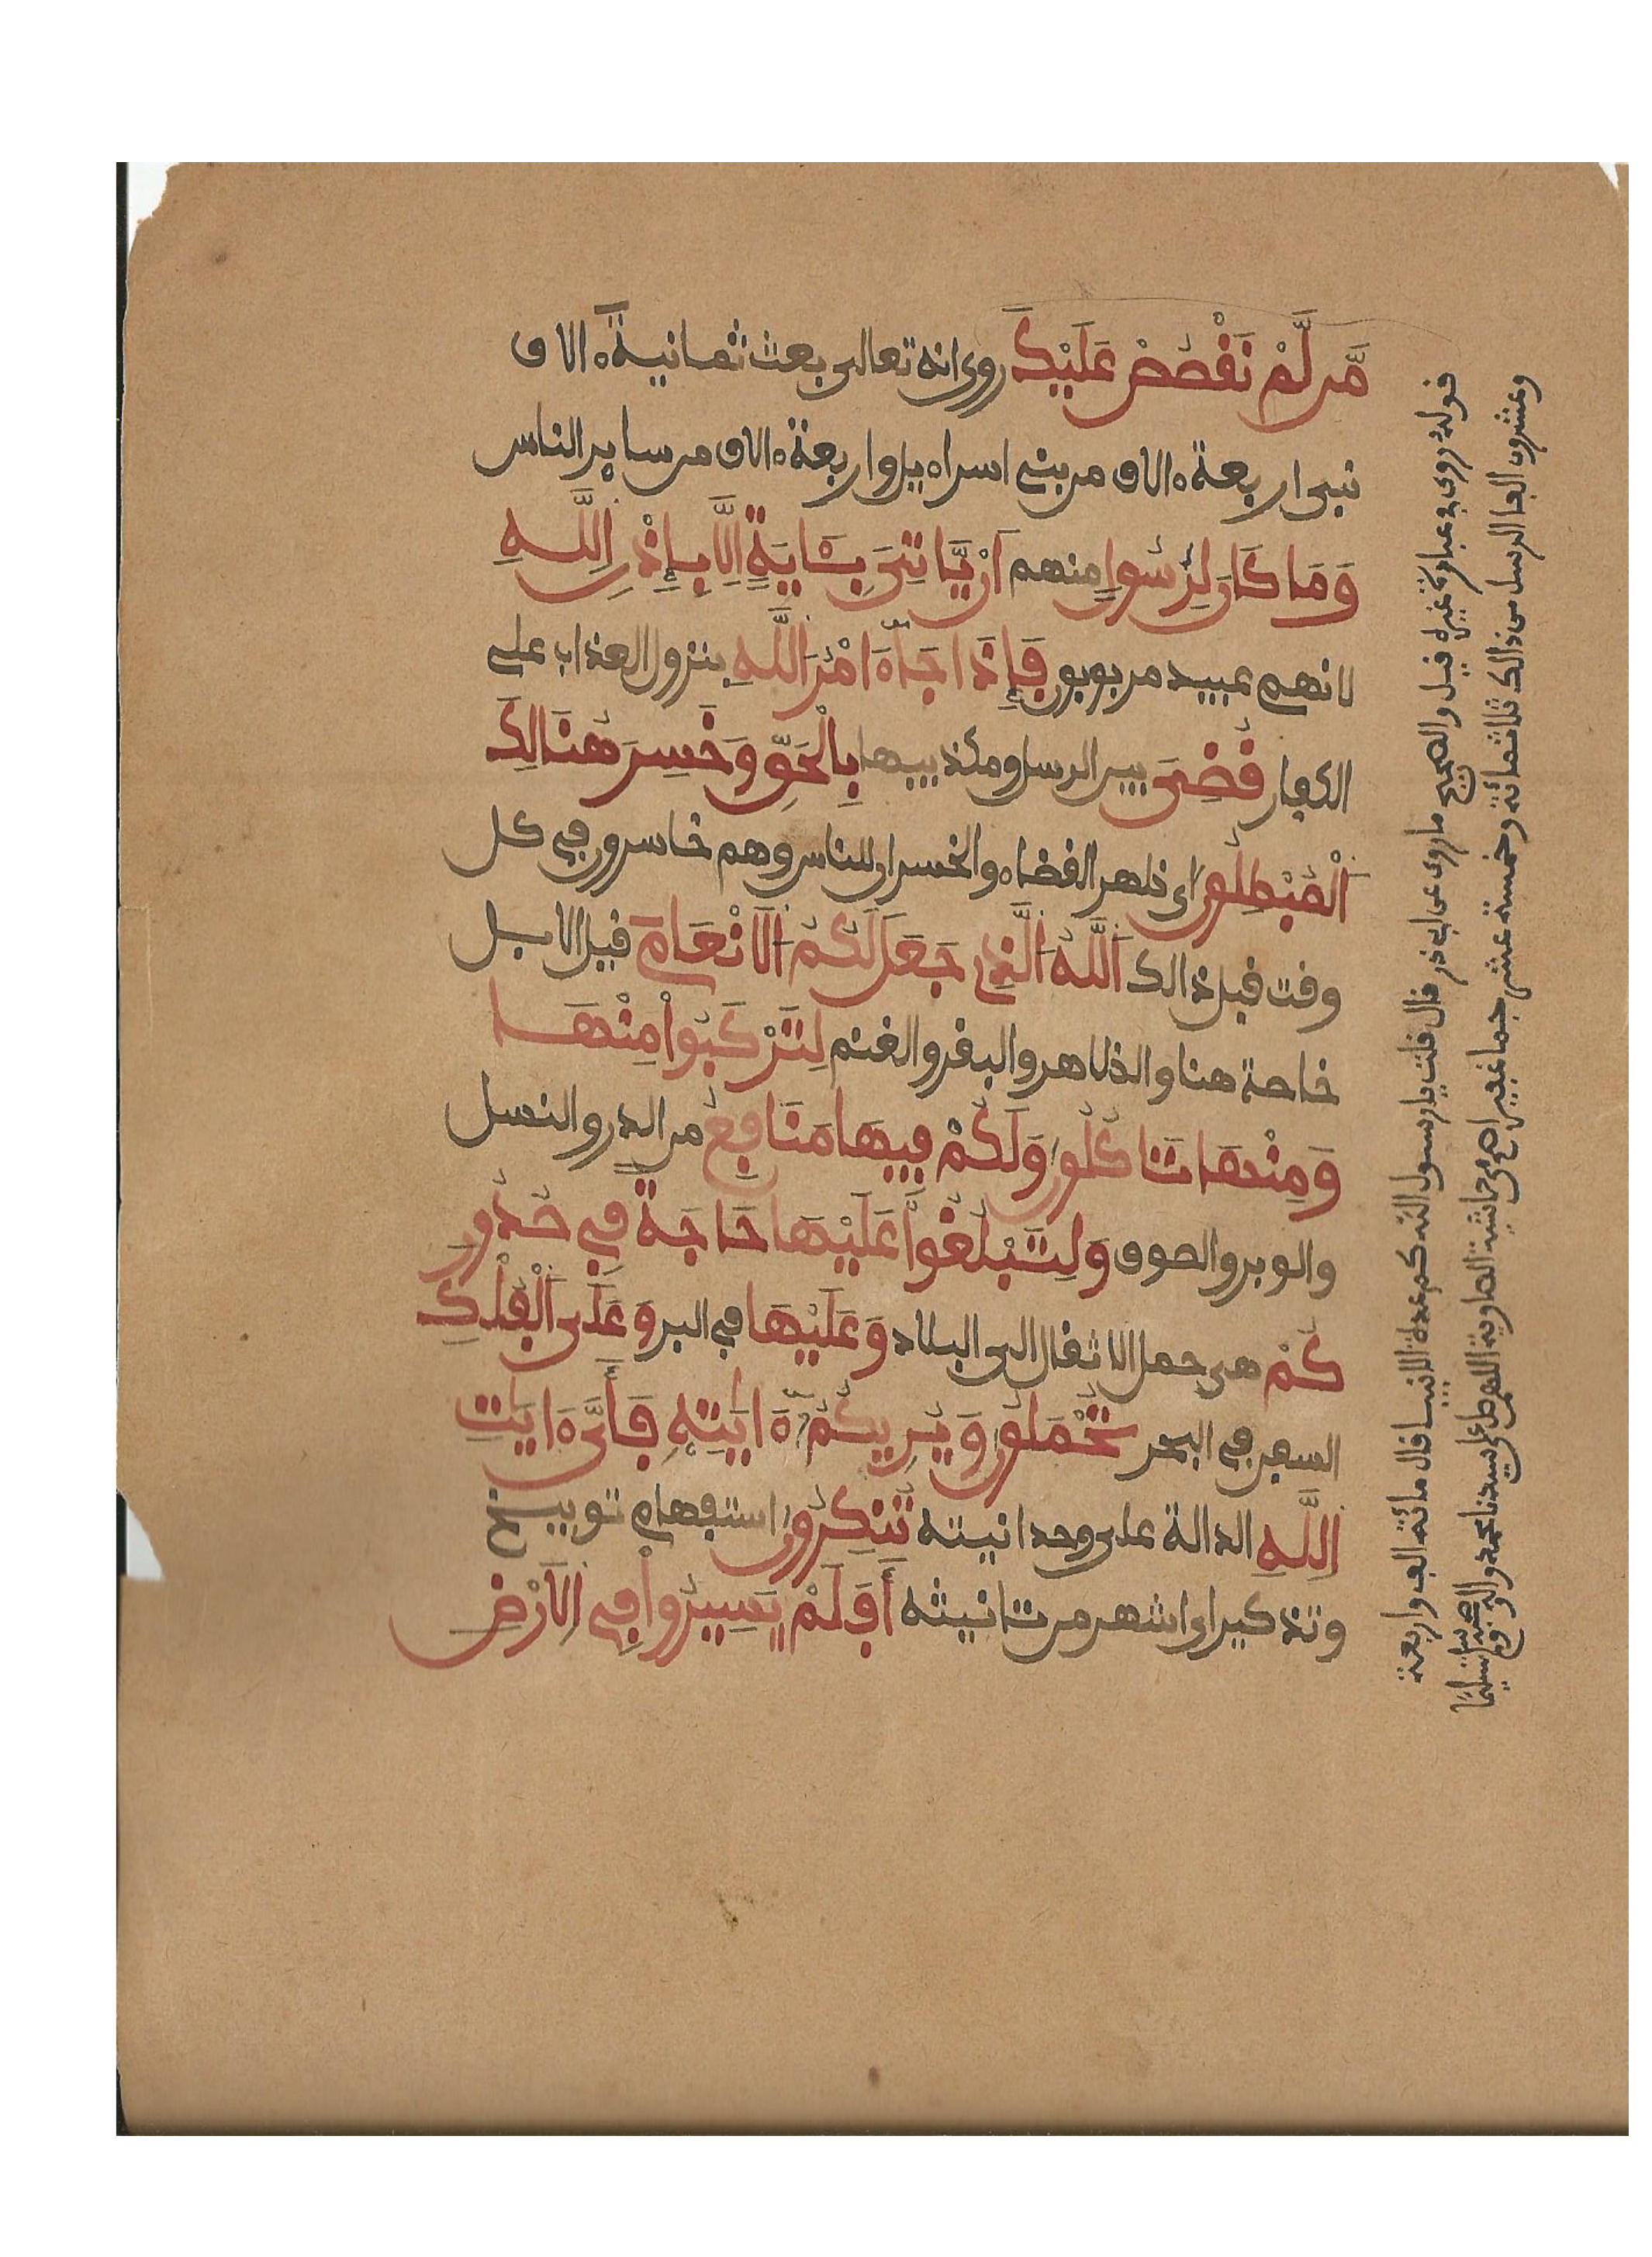 مَّن لَّمْ نَقْصُصْ عَلَيْكَ روى انه تعالى بعث ثمانية ءالاف
نبي اربعة ءالاف من بني اسراءيل واربعة ءالاف من ساير الناس
وَمَا كَانَ لِرَسُولٍ منهم أَنْ يَّاتِيَ بِـَٔايَةٍ اِلَّا بِإِذْنِ اِللَّهِ
لانهم عبيد مربوبون فَإِذَا جَآءَ امْرُ اللَّهِ بنزول العذاب على
الكفار قُضِيَ بين الرسل ومكذبيها بِالْحَقِّ وَخَسِرَ هُنَالِكَ
اَلْمُبْطِلُونَ اى ظهر القضاء والخسران للناس وهم خاسرون في كل
وقت قبل ذالك اَللَّهُ الَّذِي جَعَلَ لَكُمُ الَانْعَامَ قيل الابل
خاصة هنا والظاهر والبقر والغنم لِتَرْكَبُوا مِنْهَا
وَمِنْهَا تَاكُلُونَ وَلَكُمْ فِيهَا مَنَافِعُ من الدر والنسل
والوبر والصوف وَلِتَبْلُغُوا عَلَيْهَا حَاجَةً فِي صُدُورِ
كُمْ هى حمل الاثقال الى البلاد وَعَلَيْهَا في البر وَعَلَى الْفُلْكِ
السفن في البحر تُحْمَلُونَ وَيُرِيكُمُ ءَايَٰتِهِ فَأَيَّ ءَايَٰتِ
اِللَّهِ الدالة على وحدانيته تُنكِرُونَ استفهام توبيخ
وتذكير اى اشهر من تانيثه أَفَلَمْ يَسِيرُوا فِي الَارْضِ
قوله روى في عبارة غيره قيل والصحيح ما روى عن ابي ذر قال قلت يارسول الله كم عدة الانبيا قال مائة الف واربعة
وعشرون الفا الرسل من ذالك ثلاثمائة وخمسة عشر جما غفيرا اهـ من حاشية الصاوية اللهم صل على سيدنا محمد واله وصحبه وسلم تسليما